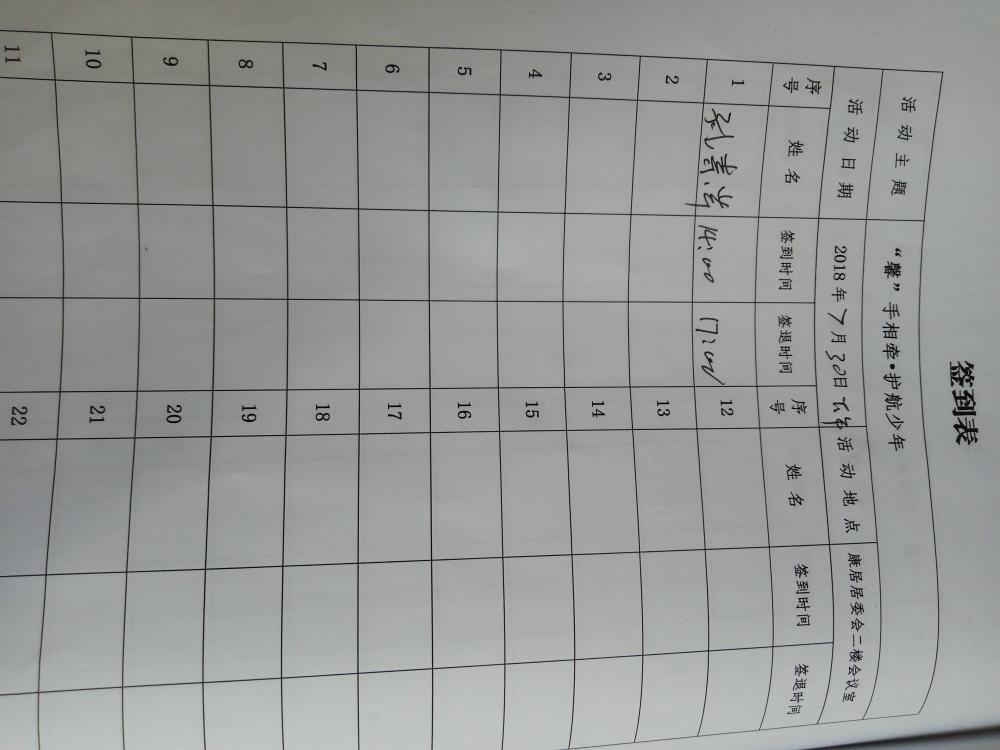 签到表
活动主题 “馨”手相牵·护航少年
活动日期 2018年7月30日下午 活动地点 康居居委会二楼会议室
序号 姓名 签到时间 签退时间 序号 姓名 签到时间 签退时间
1 14:00 17:00 12
2 13
3 14
4 15
5 16
6 17
7 18
8 19
9 20
10 21
11 22